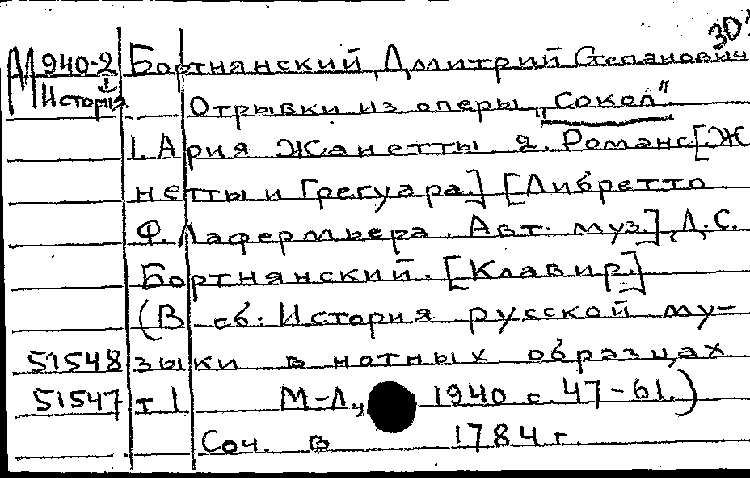 303
М 940-2 Бортнянский, Дмитрий Степанович
I
История Отрывки из оперы „Сокол"
1. Ария Жанетты 2. Романс [Ж
нетты и Грегуара.] [Либретто
Ф. Лафермьера. Авт. муз.] Д. С.
Бортнянский. [Клавир.]
(В сб: История русской му-
51548 зыки в нотных образцах
51547 т 1 М-Л, 1940 с. 47-61.)
Соч. в 1784 г.